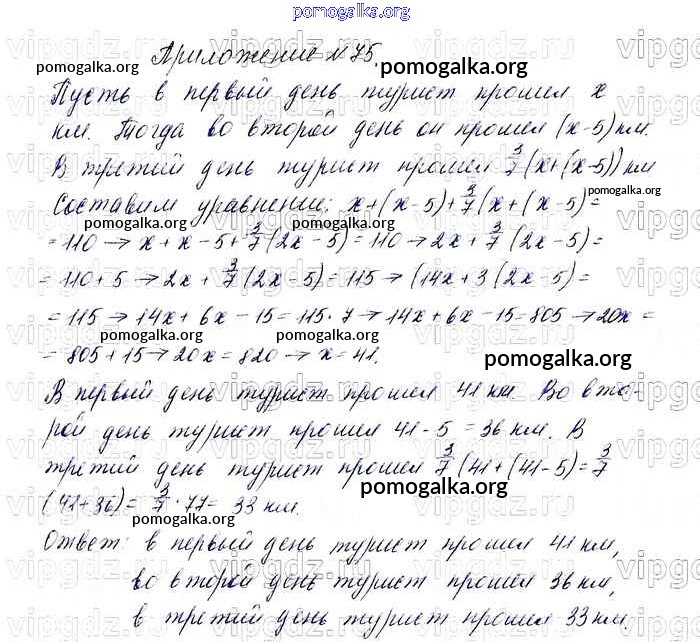 pomogalka.org
Приложение №75.
pomogalka.org pomogalka.org
Пусть в первый день турист прошел x
км. Тогда во второй день он прошел (x-5) км.
В третий день турист прошел 3/7(x+(x-5)) км
pomogalka.org
Составим уравнение: x+(x-5)+3/7(x+(x-5)=
pomogalka.org pomogalka.org
=110→x+x-5+3/7(2x-5)=110→2x+3/7(2x-5)=
=110+5→2x+3/7(2x-5)=115→(14x+3(2x-5)=
=115→14x+6x-15=115·7→14x+6x-15=805→20x=
pomogalka.org pomogalka.org
=805+15→20x=820→x=41.
pomogalka.org
В первый день турист прошел 41 км. Во вто-
рой день турист прошел 41-5=36 км. В
третий день турист прошел 3/7(41+(41-5)=3/7
pomogalka.org
(41+36)=3/7·77=33 км.
pomogalka.org
Ответ: в первый день турист прошел 41 км,
во второй день турист прошел 36 км,
pomogalka.org
в третий день турист прошел 33 км.
vipgdz.ru